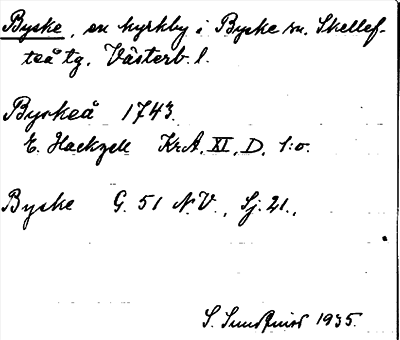 Byske, en kyrkby i Byske sn. Skellef-
teå tg, Västerb. l.
Byskeå 1743.
E. Hackzell KrA. XI, D. 1:o.
Byske G. 51 N.V., Sj. 21.,
S. Sundquist 1935.